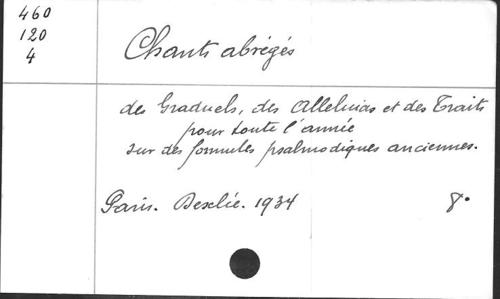 460
120
4
Chants abrégés
des Graduels, des Alleluias et des Traits
pour toute l'année
sur des formules psalmodiques anciennes.
Paris. Desclée. 1934 8°